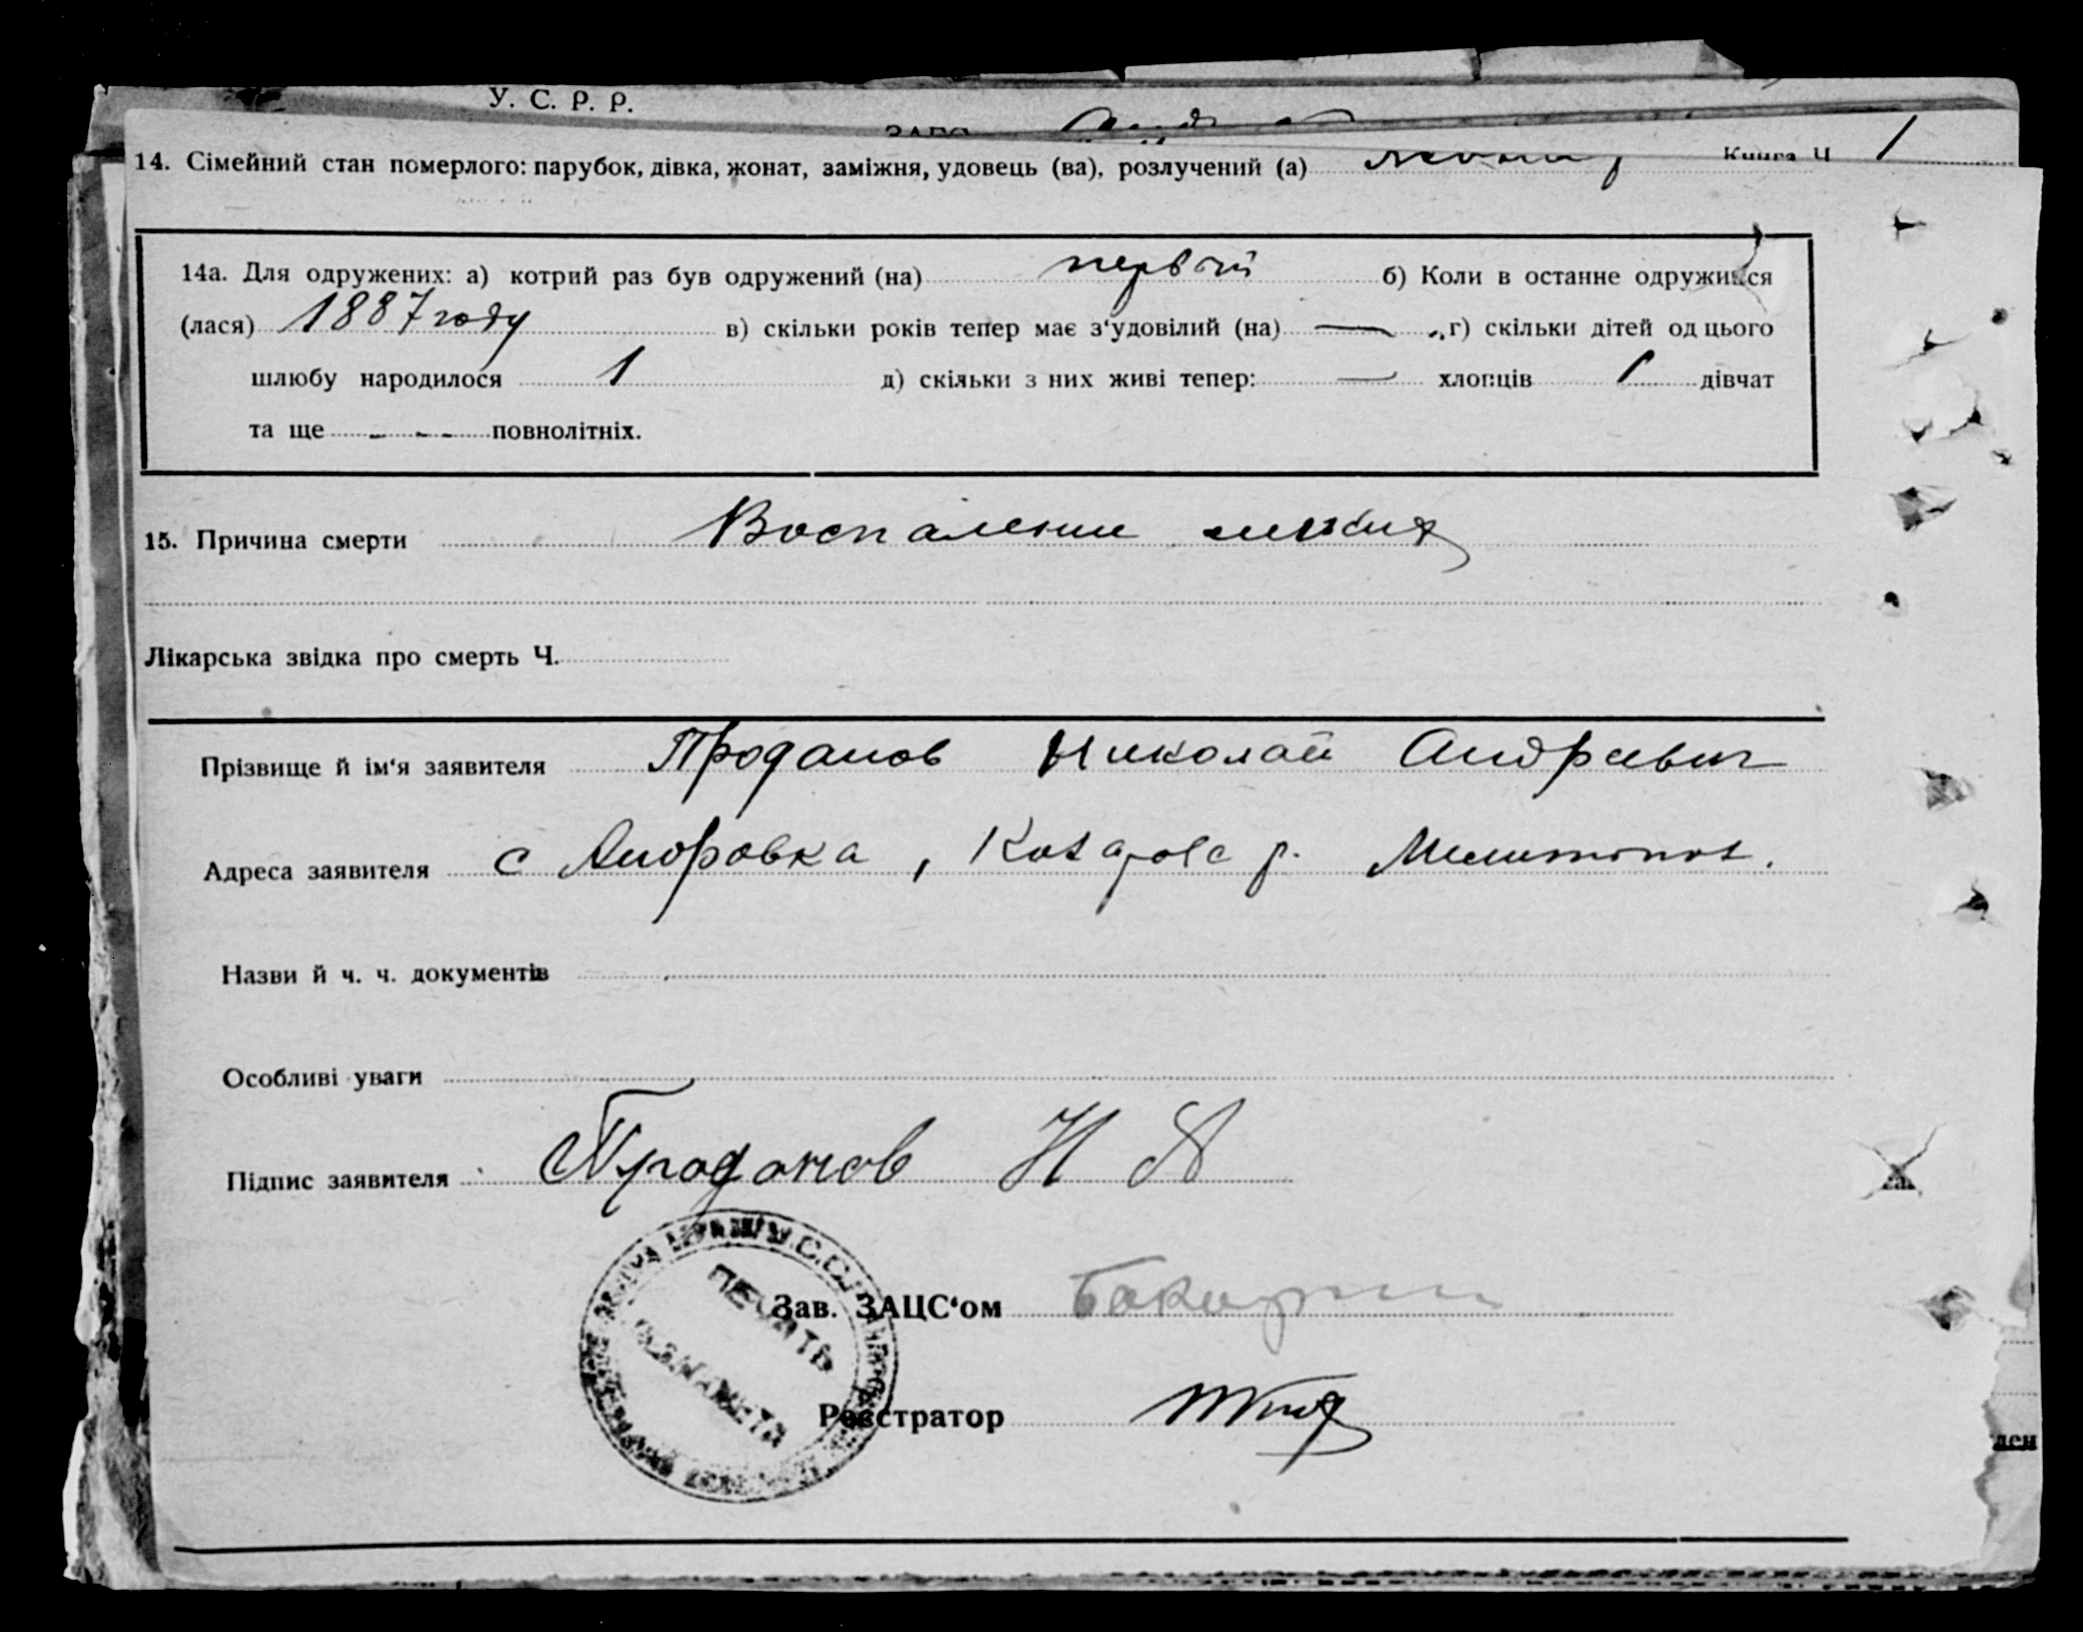 У. С. Р. Р.
Книга Ч 1
14. Сімейний стан померлого: парубок, дівка, жонат, заміжня, удовець (ва), розлучений (а)
14а. Для одружених: а) котрий раз був одружений (на) первый б) Коли в останне одружився
(лася) 1887 году в) скільки років тепер має з'удовілий (на) — г) скільки дітей од цього
шлюбу народилося 1 д) скільки з них живі тепер: — хлопців 1 дівчат
та ще - - - повнолітніх.
15. Причина смерти Воспаление
Лікарська звідка про смерть Ч.
Прізвище й ім'я заявителя Проданов Николай Андреевич
Адреса заявителя с Андровка, р. Мелитопол.
Назви й ч. ч. документів
Особливі уваги
Підпис заявителя Проданов Н А
ПЕЧАТЬ
Зав. ЗАЦС'ом
Реєстратор